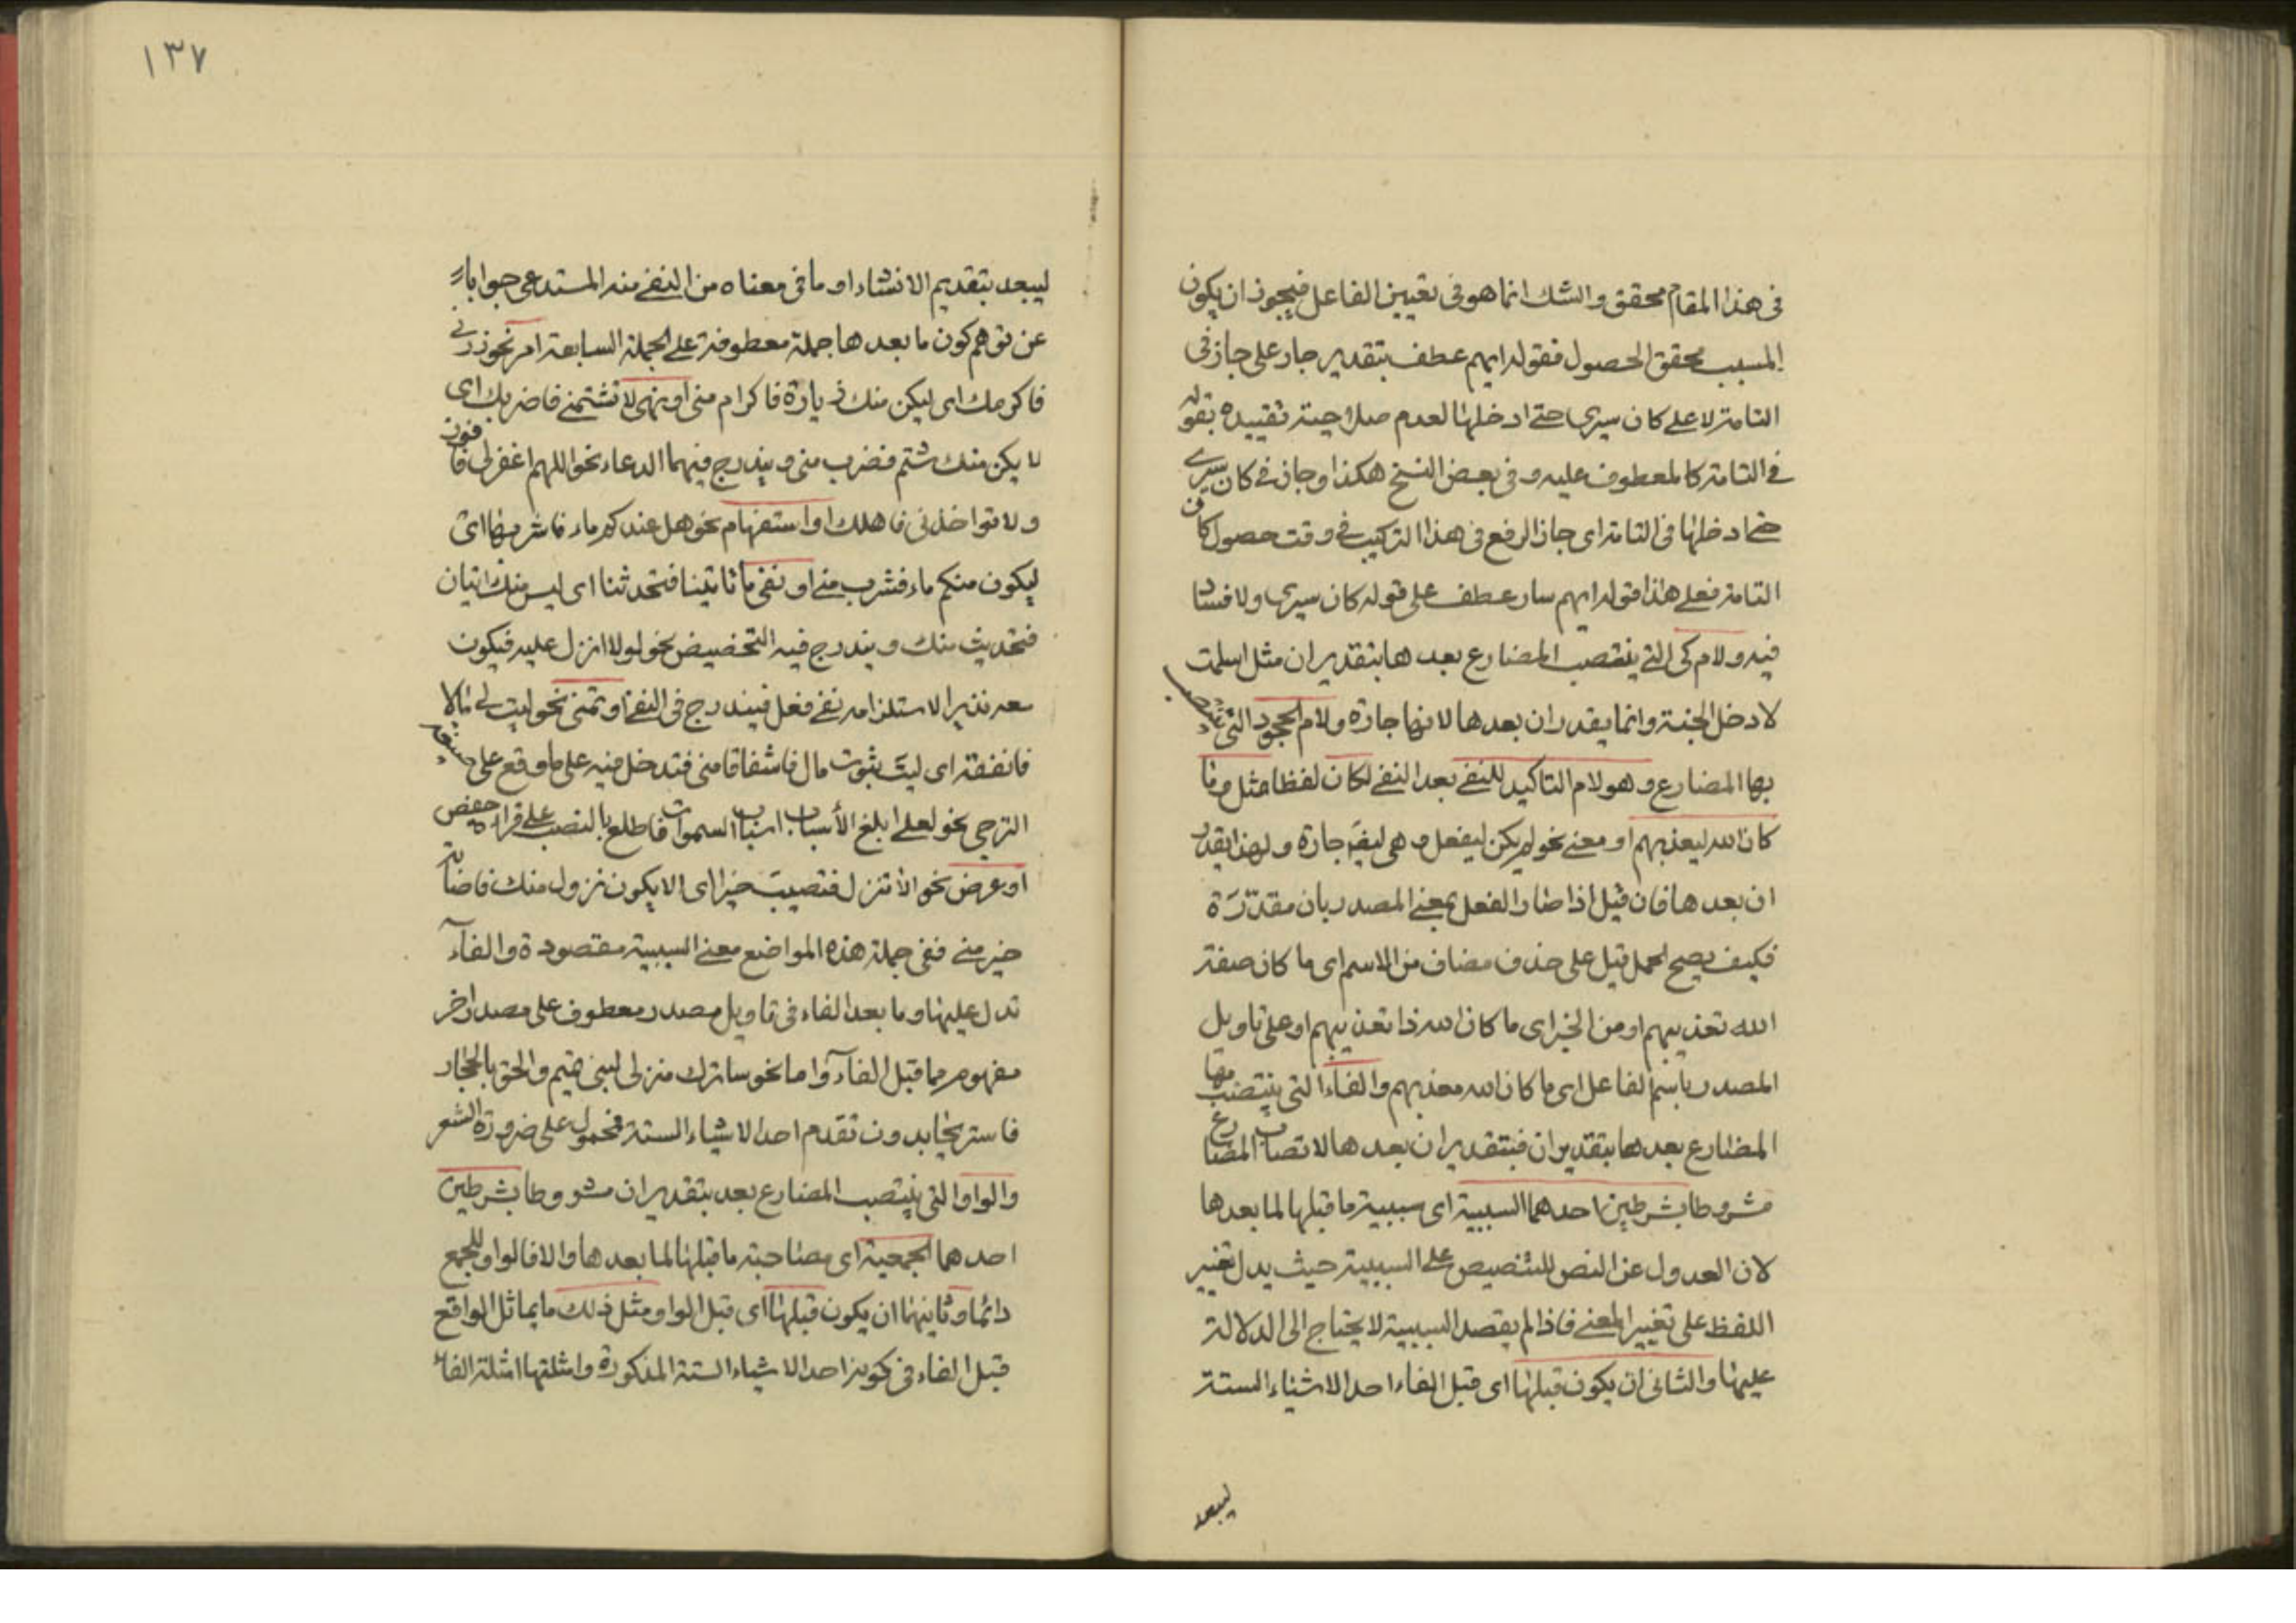 فى هذا المقام محقق والشك انما هو فى تعيين الفاعل فيجوز ان يكون
المسبب محقق الحصول فقوله ايهم عطف بتقدير جار على جاز فى
التامة لا على كان سيرى حتى ادخلها لعدم صلاحية تقييده بقوله
فى التامة كالمعطوف عليه وفى بعض النسخ هكذا وجاز فى كان سيرى
حتى ادخلها فى التامة اى جاز الرفع فى هذا التركيب فى وقت حصول كان
التامة فعلى هذا قوله ايهم سار عطف على قوله كان سيرى ولا فساد
فيه ولام كى التى ينتصب المضارع بعدها بتقدير ان مثل اسلمت
لادخل الجنة وانما يقدر ان بعدها لانها جارة ولام الجحود التى ينتصب
بها المضارع وهو لام التاكيد للنفى بعد النفى لكان لفظا مثل وما
كان الله ليعذبهم او معنى نحو لم يكن ليفعل وهى ايضا جارة ولهذا يقدر
ان بعدها فان قيل اذا صار الفعل بمعنى المصدر بان مقدرة
فكيف يصح الحمل قيل على حذف مضاف من الاسم اى ما كان صفة
الله تعذيبهم او من الخبر اى ما كان الله ذا تعذيبهم او على تاويل
المصدر باسم الفاعل اى ما كان الله معذبهم والفاء التى ينتصب بها
المضارع بعدها بتقدير ان فبتقدير ان بعدها لانتصاب المضارع
مشروط بشرطين احدهما السببية اى سببية ما قبلها لما بعدها
لان العدول عن النص للتنصيص على السببية حيث يدل تغيير
اللفظ على تغيير المعنى فاذا لم يقصد السببية لا يحتاج الى الدلالة
عليها والثانى ان يكون قبلها اى قبل الفاء احد الاشياء الستة
ليبعد
١٣٧
ليبعد بتقديم الانشاء او ما فى معناه من النفى منه المستدعى جوابا
عن توهم كون ما بعدها جملة معطوفة على الجملة السابقة امر نحو زرنى
فاكرمك اى ليكن منك زيارة فاكرام منى او نهى لا تشتمنى فاضربك اى
لا يكن منك شتم فضرب منى ويندرج فيهما الدعاء نحو اللهم اغفر لى فافوز
ولا تواخذنى فاهلك او استفهام نحو هل عندكم ماء فاشربه اى
ليكون منكم ماء فشرب منى او نفى ما تاتينا فتحدثنا اى ليس منك اتيان
فتحديث منك ويندرج فيه التحضيض نحو لولا انزل عليه فيكون
معه نذيرا لاستلزامه نفى فعل فيندرج فى النفى او تمنى نحو ليت لى مالا
فانفقه اى ليت ثبوت مال فانفاقا منى فتدخل فيه على ما وقع على صيغة
الترجى نحو لعلى ابلغ الأسباب اسباب السموات فاطلع بالنصب على قراءة حفص
او عرض نحو الا تنزل فتصيب خيرا اى الا يكون نزول منك فاصابة
خير منى ففى جملة هذه المواضع معنى السببية مقصودة والفاء
تدل عليها وما بعد الفاء فى تاويل مصدر معطوف على مصدر اخر
مفهوم مما قبل الفاء واما نحو ساترك منزلى لبنى تميم والحق بالحجاز
فاستريحا بدون تقدم احد الاشياء الستة فمحمول على ضرورة الشعر
والواو التى ينتصب المضارع بعد بتقدير ان مشروط بشرطين
احدهما الجمعية اى مصاحبة ما قبلها لما بعدها والا فالواو للجمع
دائما وثانيها ان يكون قبلها اى قبل الواو مثل ذلك ما يماثل الواقع
قبل الفاء فى كونه احد الاشياء الستة المذكورة وامثلتها امثلة الفاء